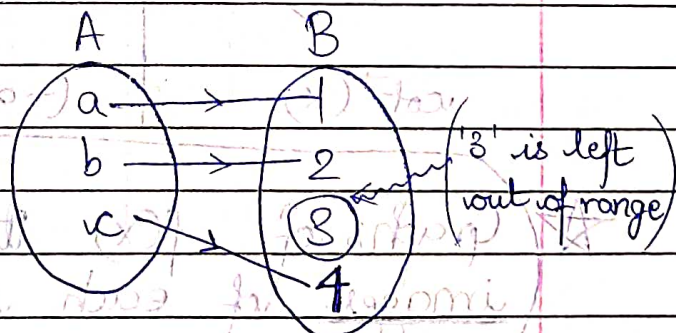 A B
a 1
b 2
c 3
4
('3' is left
out of range)